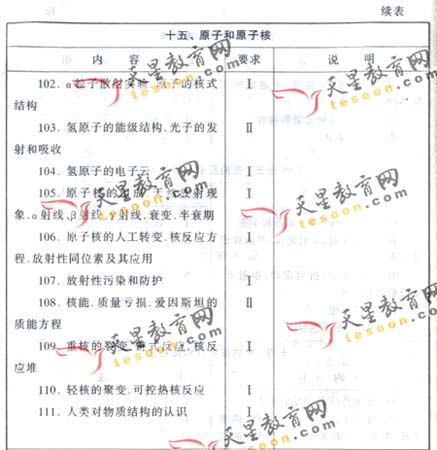 续表
十五、原子和原子核
内 容 要求 说 明
102. α粒子散射实验.原子的核式 Ⅰ
结构
103. 氢原子的能级结构.光子的发 Ⅱ
射和吸收
104. 氢原子的电子云 Ⅰ
105. 原子核的组成.天然放射现 Ⅰ
象.α射线.β射线.γ射线.衰变.半衰期
106. 原子核的人工转变.核反应方 Ⅰ
程.放射性同位素及其应用
107. 放射性污染和防护 Ⅰ
108. 核能.质量亏损.爱因斯坦的 Ⅱ
质能方程
109. 重核的裂变.链式反应.核反 Ⅰ
应堆
110. 轻核的聚变.可控热核反应 Ⅰ
111. 人类对物质结构的认识 Ⅰ
天星教育网
tesoon.com
天星教育网
tesoon.com
天星教育网
tesoon.com
天星教育网
tesoon.com
天星教育网
tesoon.com
天星教育网
tesoon.com
天星教育网